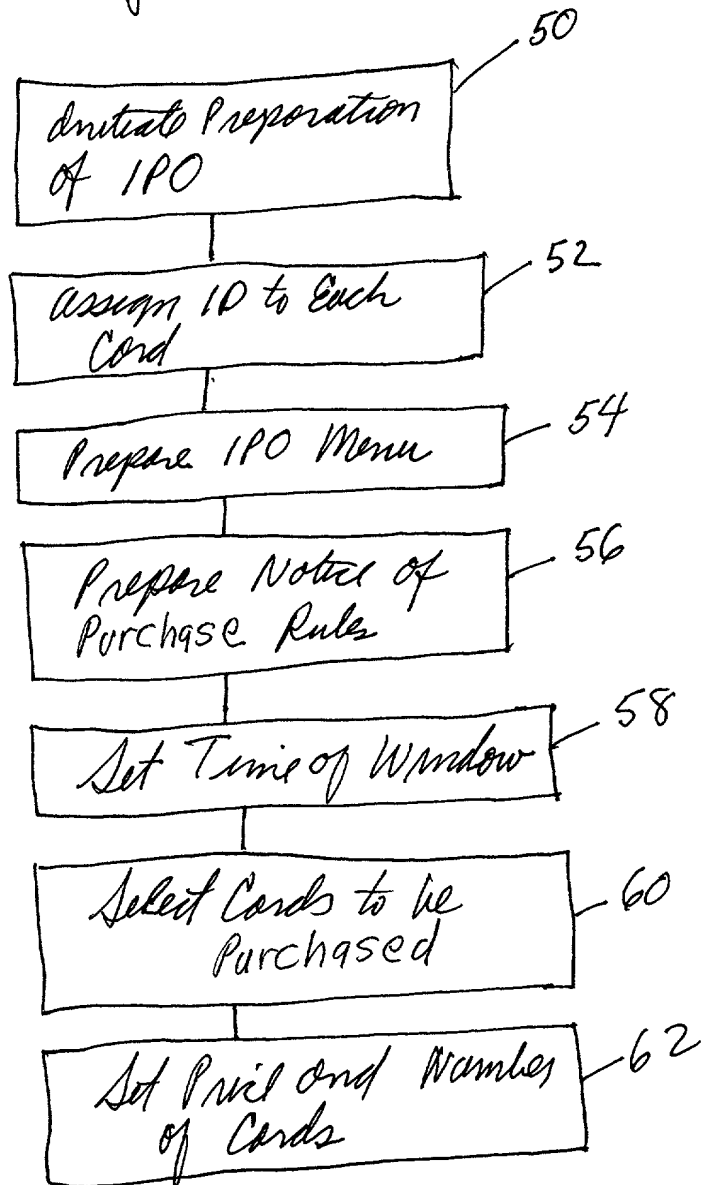 50
Initiate Preparation
of IPO
52
Assign ID to Each
Card
54
Prepare IPO Menu
56
Prepare Notice of
Purchase Rules
58
Set Time of Window
60
Select Cards to be
Purchased
62
Set Price and Number
of Cards